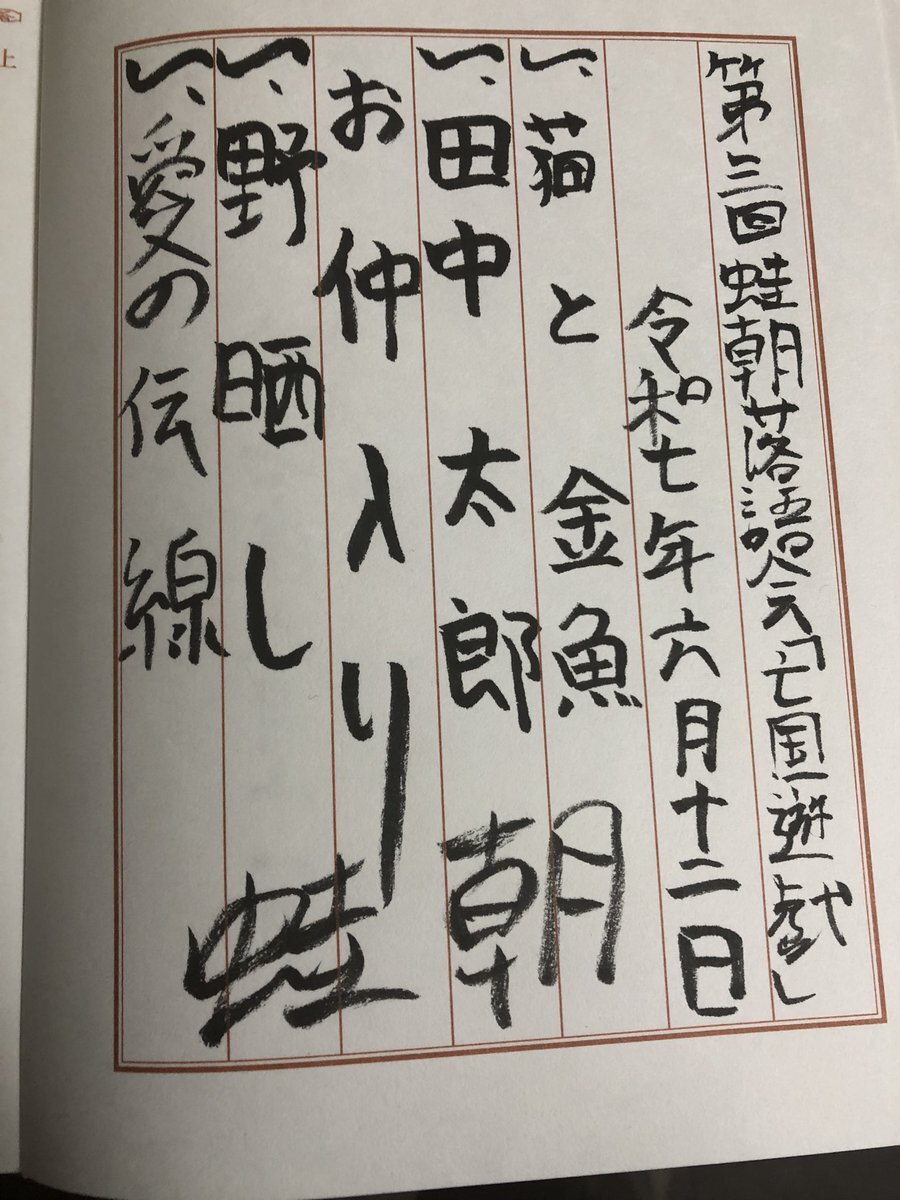 第三回蛙朝落語会「亡国遊戯」
令和七年六月十二日
一、猫と金魚
一、田中太郎
お仲入り
一、野晒し
一、愛の伝線
蛙朝
上